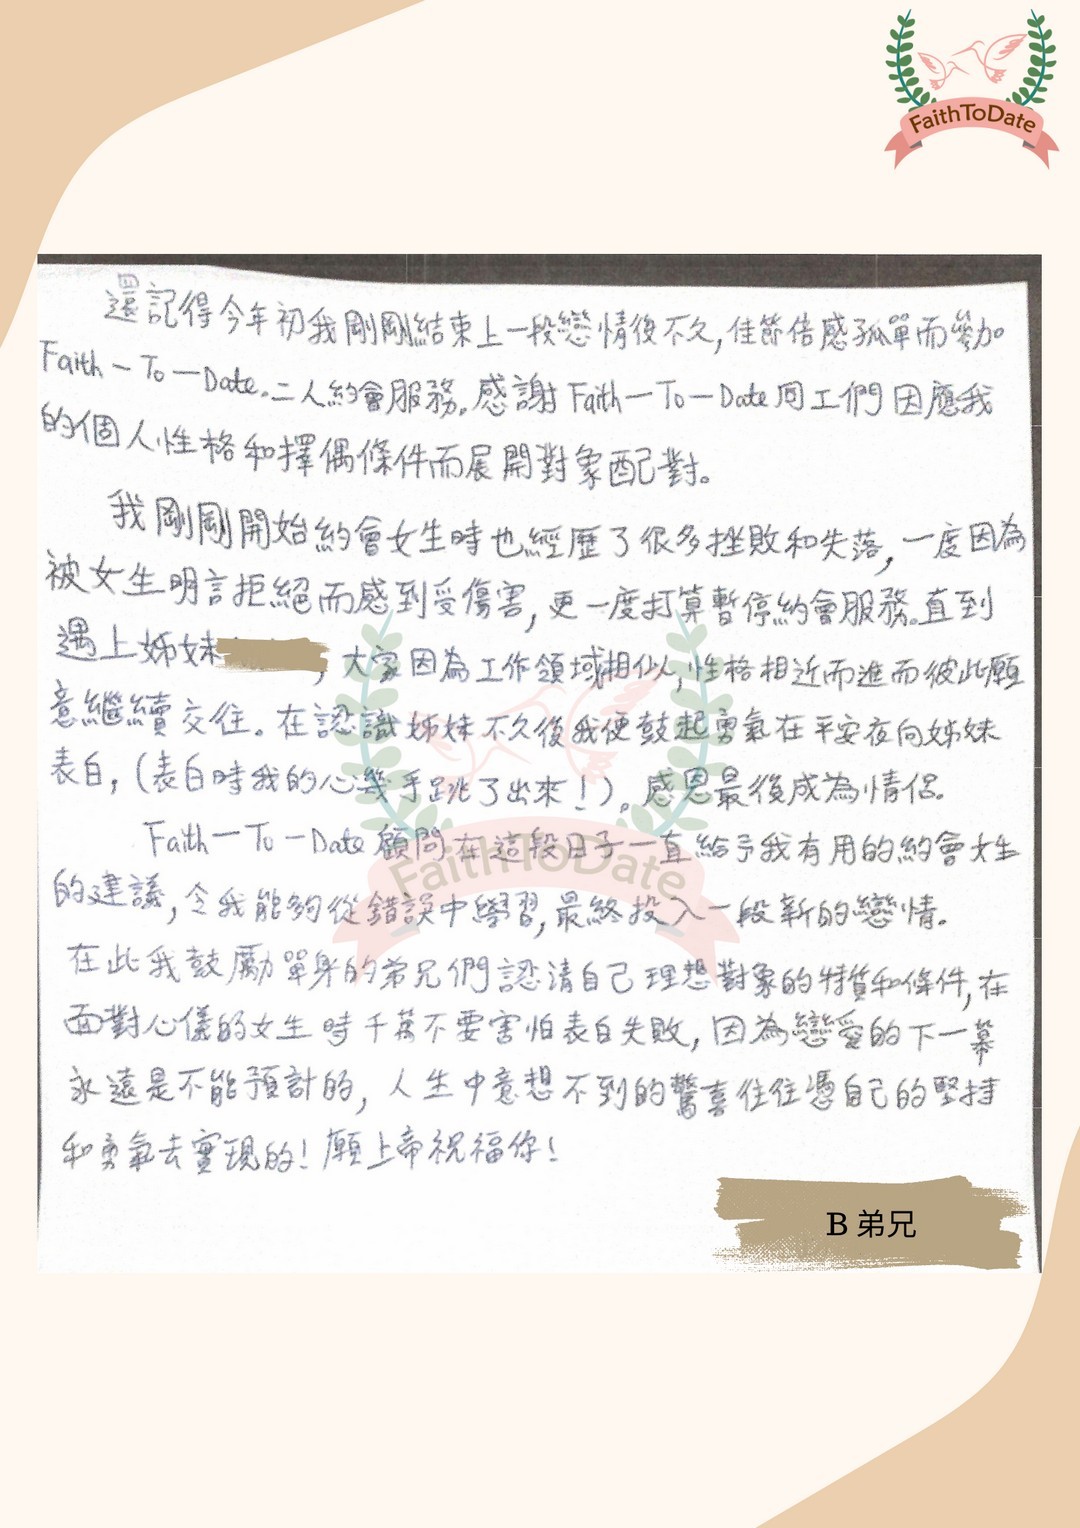 FaithToDate
還記得今年初我剛剛結束上一段戀情後不久,佳節倍感孤單而參加
Faith-To-Date.二人約會服務。感謝Faith-To-Date同工們因應我
的個人性格和擇偶條件而展開對象配對。
我剛剛開始約會女生時也經歷了很多挫敗和失落,一度因為
被女生明言拒絕而感到受傷害,更一度打算暫停約會服務。直到
遇上姊妹 ,大家因為工作領域相似,性格相近而進而彼此願
意繼續交往。在認識姊妹不久後我便鼓起勇氣在平安夜向姊妹
表白,(表白時我的心幾乎跳了出來!)。感恩最後成為情侶。
Faith-To-Date顧問在這段日子一直給予我有用的約會女生
的建議,令我能夠從錯誤中學習,最終投入一段新的戀情。
在此我鼓勵單身的弟兄們認清自己理想對象的特質和條件,在
面對心儀的女生時千萬不要害怕表白失敗,因為戀愛的下一幕
永遠是不能預計的,人生中意想不到的驚喜往往憑自己的堅持
和勇氣去實現的!願上帝祝福你!
FaithToDate
B 弟兄